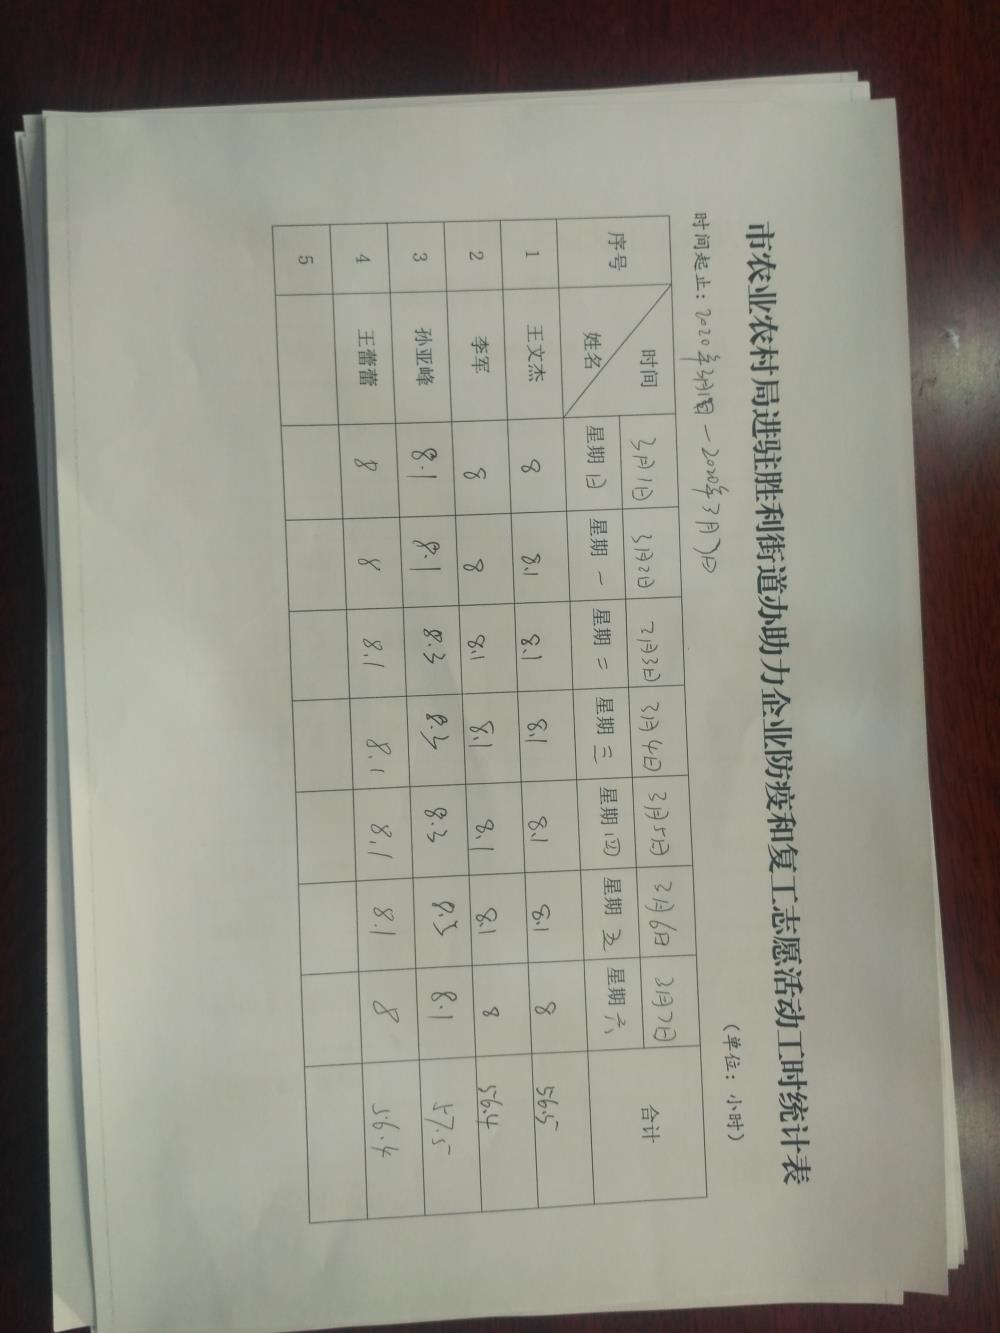 市农业农村局进驻胜利街道办助力企业防疫和复工志愿活动工时统计表
(单位：小时)
时间起止：2020年3月1日－2020年3月7日
序号 时间 3月1日 3月2日 3月3日 3月4日 3月5日 3月6日 3月7日 合计
姓名 星期日 星期一 星期二 星期三 星期四 星期五 星期六
1 王文杰 8 8.1 8.1 8.1 8.1 8.1 8 56.5
2 李军 8 8 8.1 8.1 8.1 8.1 8 56.4
3 孙亚峰 8.1 8.1 8.3 8.3 8.3 8.3 8.1 57.5
4 王蕾蕾 8 8 8.1 8.1 8.1 8.1 8 56.4
5